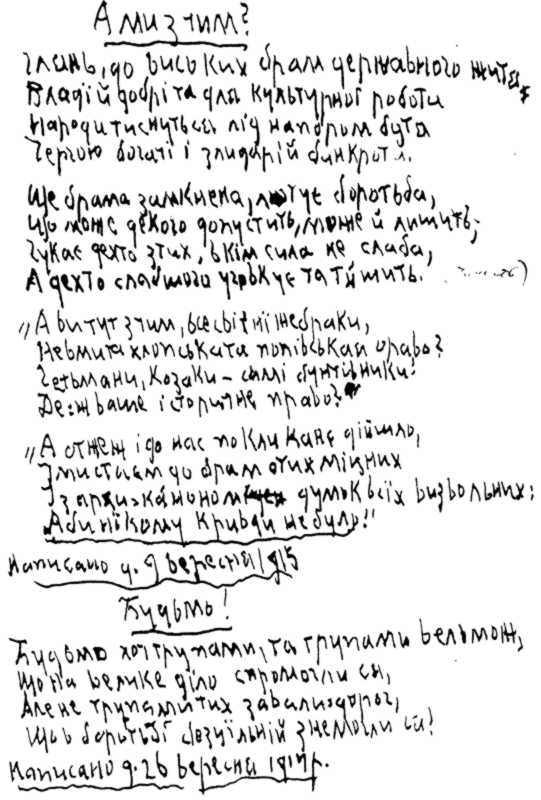 А ми з чим?
Глянь, до високих брам державного життя,
В надії добрі та для культурної роботи
Народи тиснуться під напором бута
Чергою богачі і злидарі й банкроти.
Ще брама замкнена, лютує боротьба,
Що може декого допустить, може й лишить;
Гукає дехто з тих, в кім сила не слаба,
А дехто слабшого угрокує та тішить.
„А ви тут з чим, всесвітні жебраки,
Невмита хлопська та попівськая орава?
Гетьмани, козаки – самі бунтівники!
Де ж ваше історичне право?"
„А отжеж і до нас покликане дійшло,
І ми стаєм до брам отих міцних
І з
думок всіх визвольних:
Аби нікому кривди не було!"
Написано д. 9 вересня 1915
Будьмо!
Будьмо хоч трупами, та трупами вельмож,
Що на велике діло спромогли ся,
Але не трупами тих завалидорог,
Що в боротьбі безцільній знемогли ся!
Написано д. 26 вересня